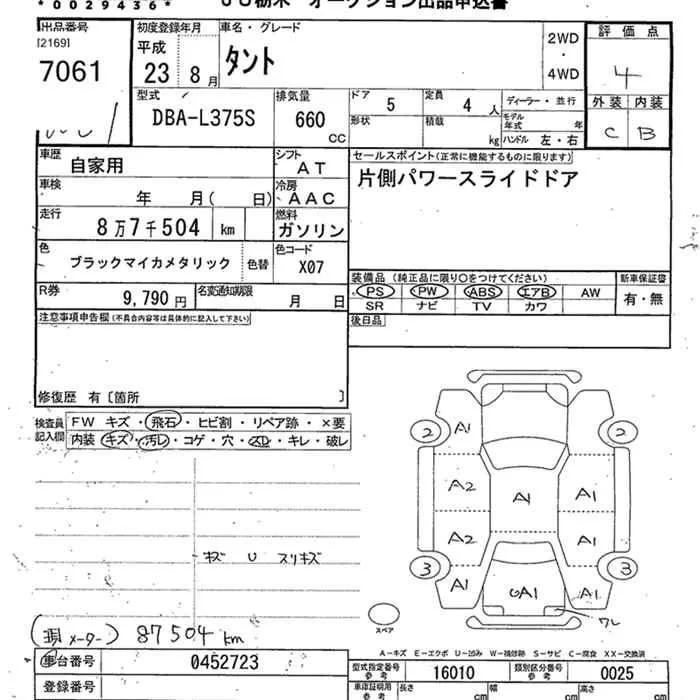 *0029436* JU栃木 オークション出品申込書
出品番号
[2169]
7061
初度登録年月
平成
23 8月
車名・グレード
タント
2WD
・
4WD
評価点
4
外装 内装
C B
型式
DBA-L375S
排気量
660
cc
ドア
5
定員
4 人
ディーラー・並行
形状
積載
kg
モデル年式 年
ハンドル 左・右
車歴
自家用
シフト
AT
車検
年 月( 日)
冷房
AAC
走行
8万7千504 km
燃料
ガソリン
色
ブラックマイカメタリック
色替
色コード
X07
R券
9,790円
名変通知期限
月 日
セールスポイント(正常に機能するものに限ります)
片側パワースライドドア
装備品 (純正品に限り○をつけてください)
新車保証書
PS PW ABS エアB AW
有・無
SR ナビ TV カワ
後日品
注意事項申告欄(不具合内容等は具体的に記入して下さい)
修復歴 有〔箇所 〕
検査員記入欄
FW キズ・飛石・ヒビ割・リペア跡・×要
内装 キズ・汚レ・コゲ・穴・スレ・キレ・破レ
キズ U スリキズ
2 A1 2
A2 A1 A1
A2 A1
3 A1 A1 3
UA1
ワレ
スペア
(現メーター) 87504 km
A-キズ E-エクボ U-凹み W-補修跡 S-サビ C-腐食 XX-交換済
車台番号
0452723
型式指定番号
参考
16010
類別区分番号
参考
0025
登録番号
車庫証明用
参考
長さ
cm
幅
cm
高さ
cm